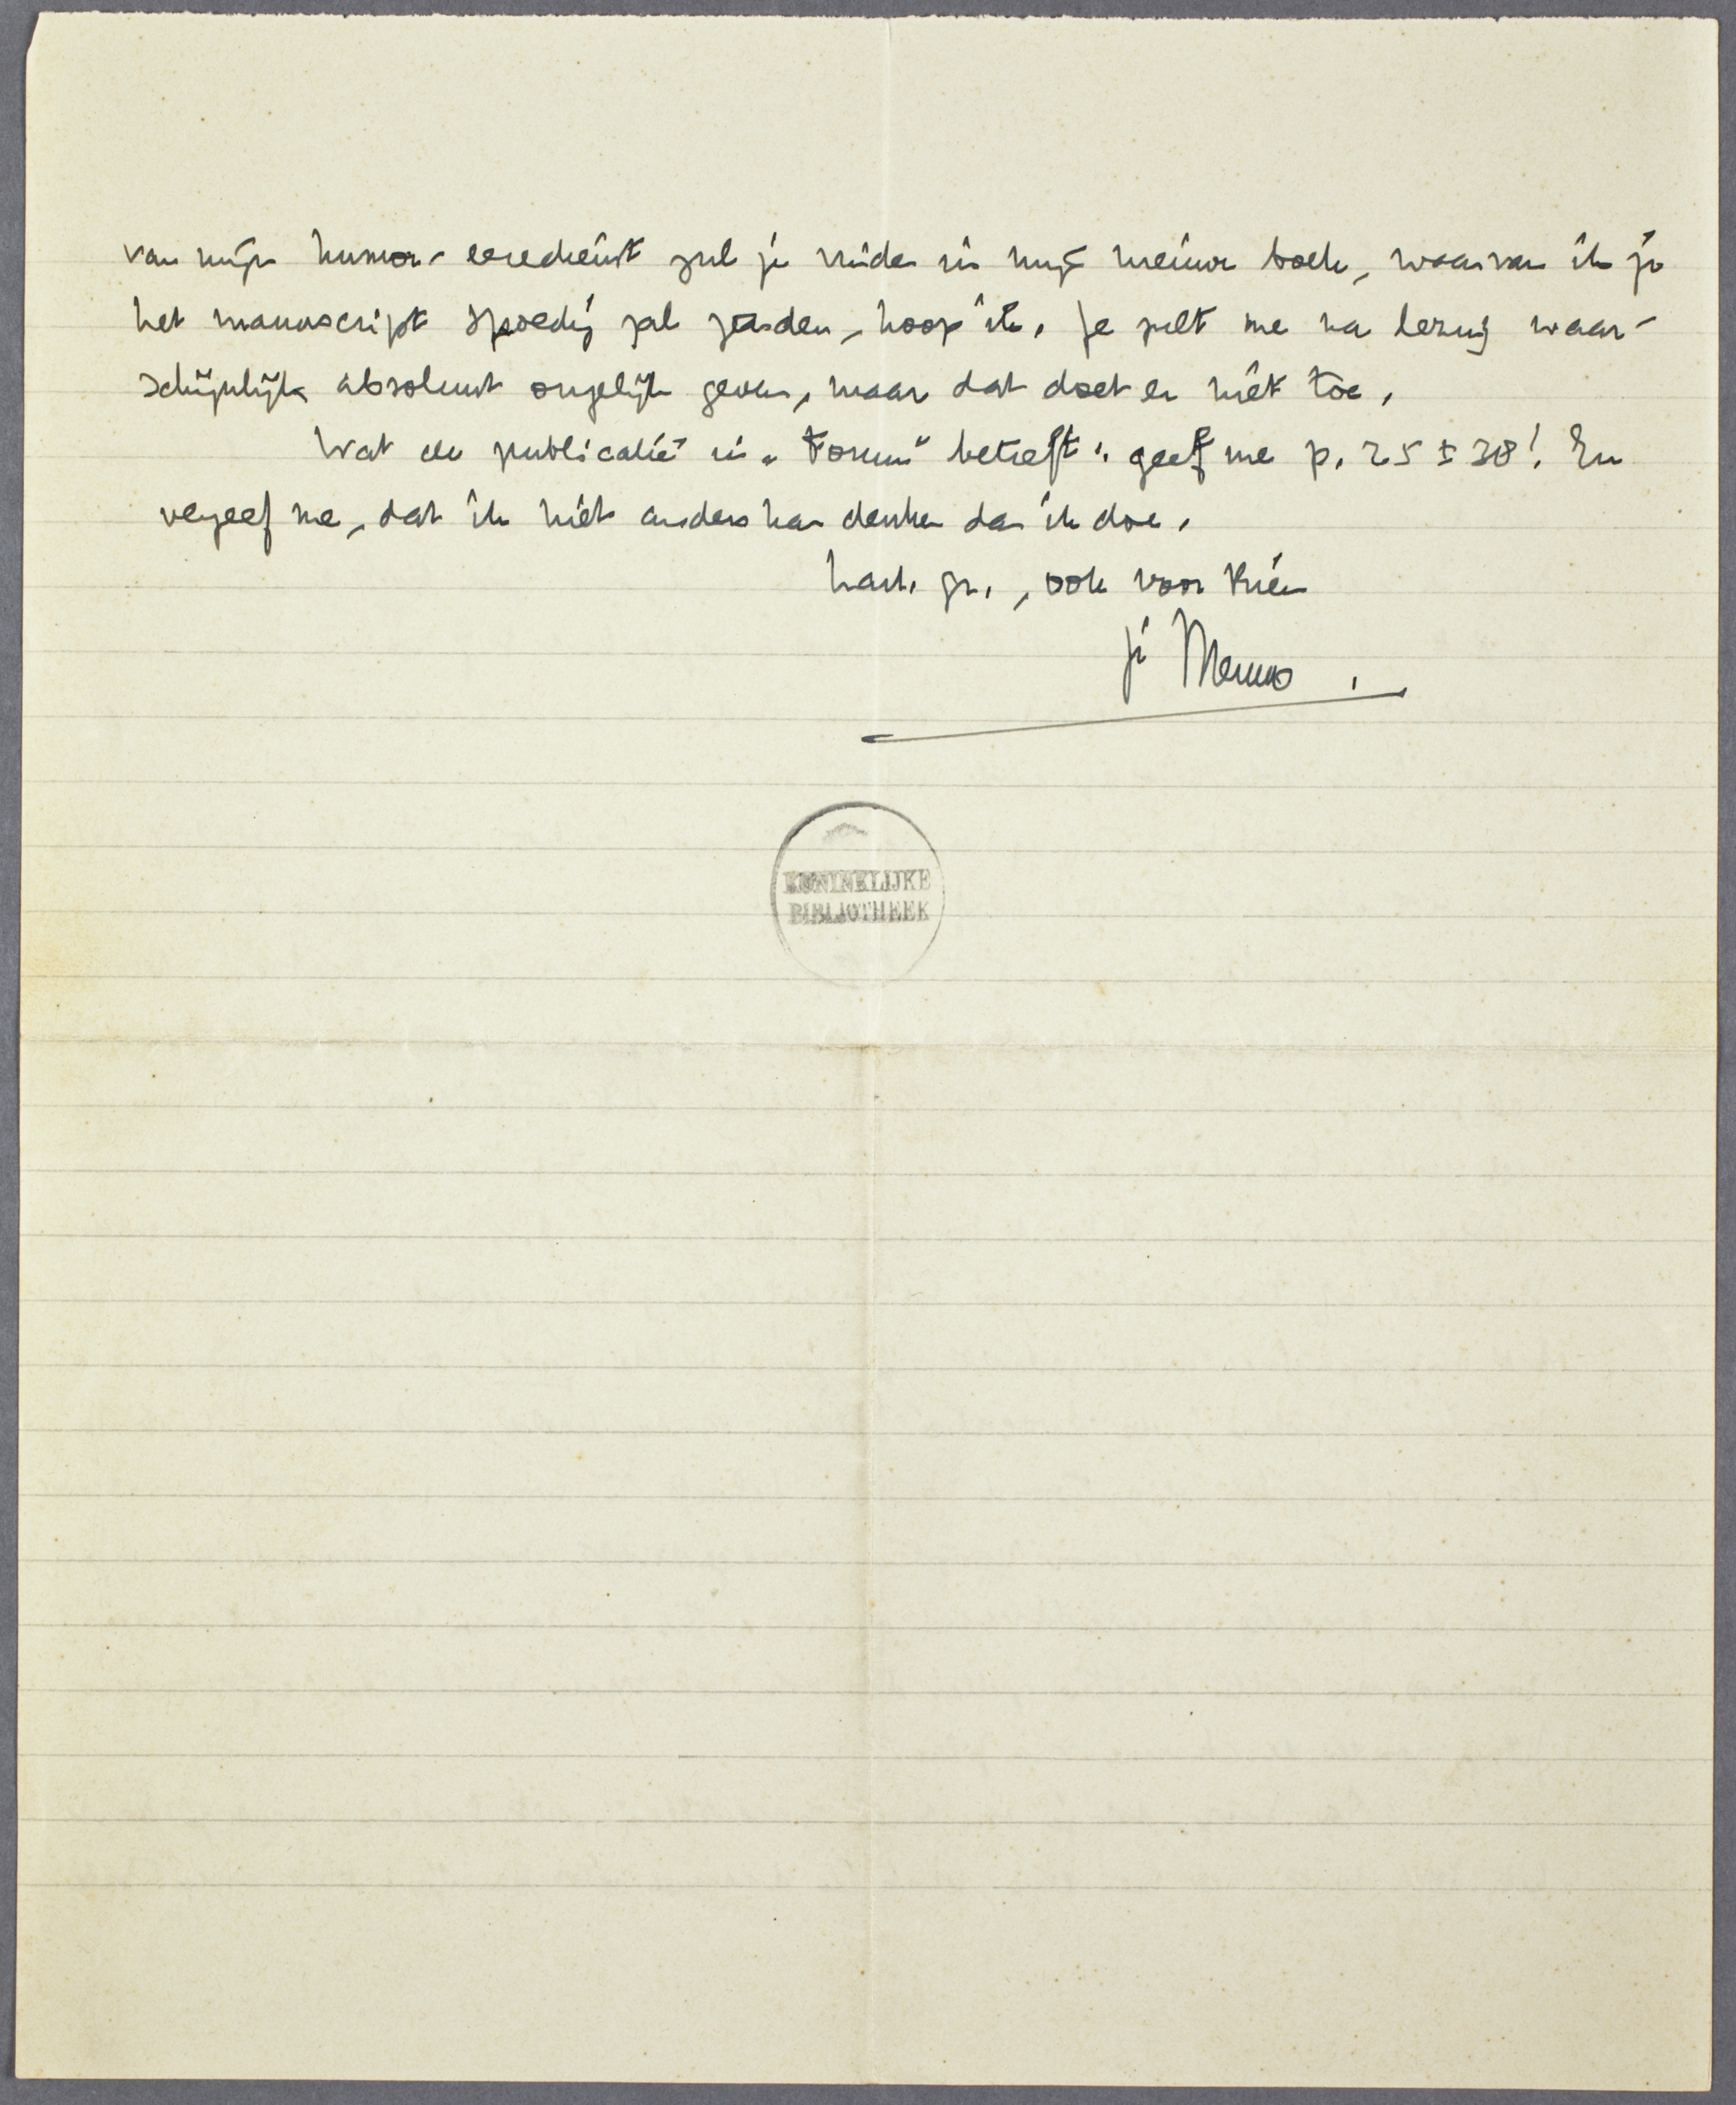 van mijn humor-eeredienst zul je vinden in mijn nieuwe boek, waarvan ik je
het manuscript spoedig zal zenden, hoop ik. Je zult me na lezing waar-
schijnlijk absoluut ongelijk geven, maar dat doet er niet toe.
Wat de publicatie in „Forum" betreft: geef me p. 25 ± 38! En
vergeef me, dat ik niet anders kan denken dan ik doe.
hart. gr., ook voor Rien
je Menno.
KONINKLIJKE
BIBLIOTHEEK